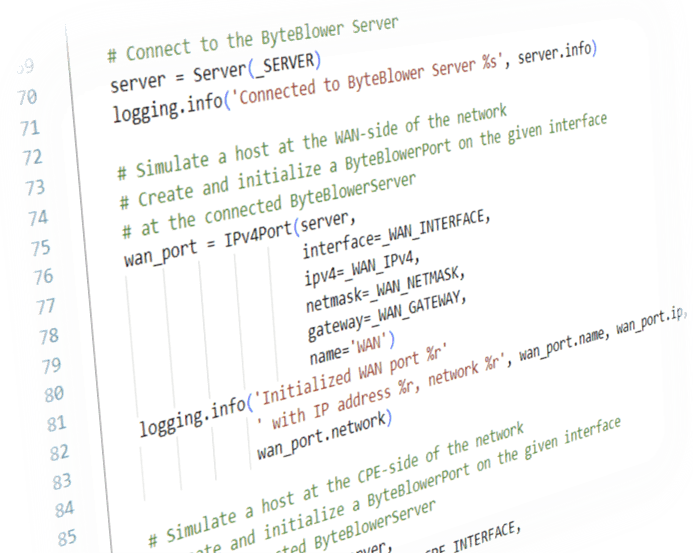 # Connect to the ByteBlower Server
69 server = Server(_SERVER)
70 logging.info('Connected to ByteBlower Server %s', server.info)
71
72 # Simulate a host at the WAN-side of the network
73 # Create and initialize a ByteBlowerPort on the given interface
74 # at the connected ByteBlowerServer
75 wan_port = IPv4Port(server,
76 interface=_WAN_INTERFACE,
77 ipv4=_WAN_IPv4,
78 netmask=_WAN_NETMASK,
79 gateway=_WAN_GATEWAY,
80 name='WAN')
81 logging.info('Initialized WAN port %r'
82 ' with IP address %r, network %r', wan_port.name, wan_port.ip,
83 wan_port.network)
84
85 # Simulate a host at the CPE-side of the network
and initialize a ByteBlowerPort on the given interface
ByteBlowerServer
_INTERFACE,